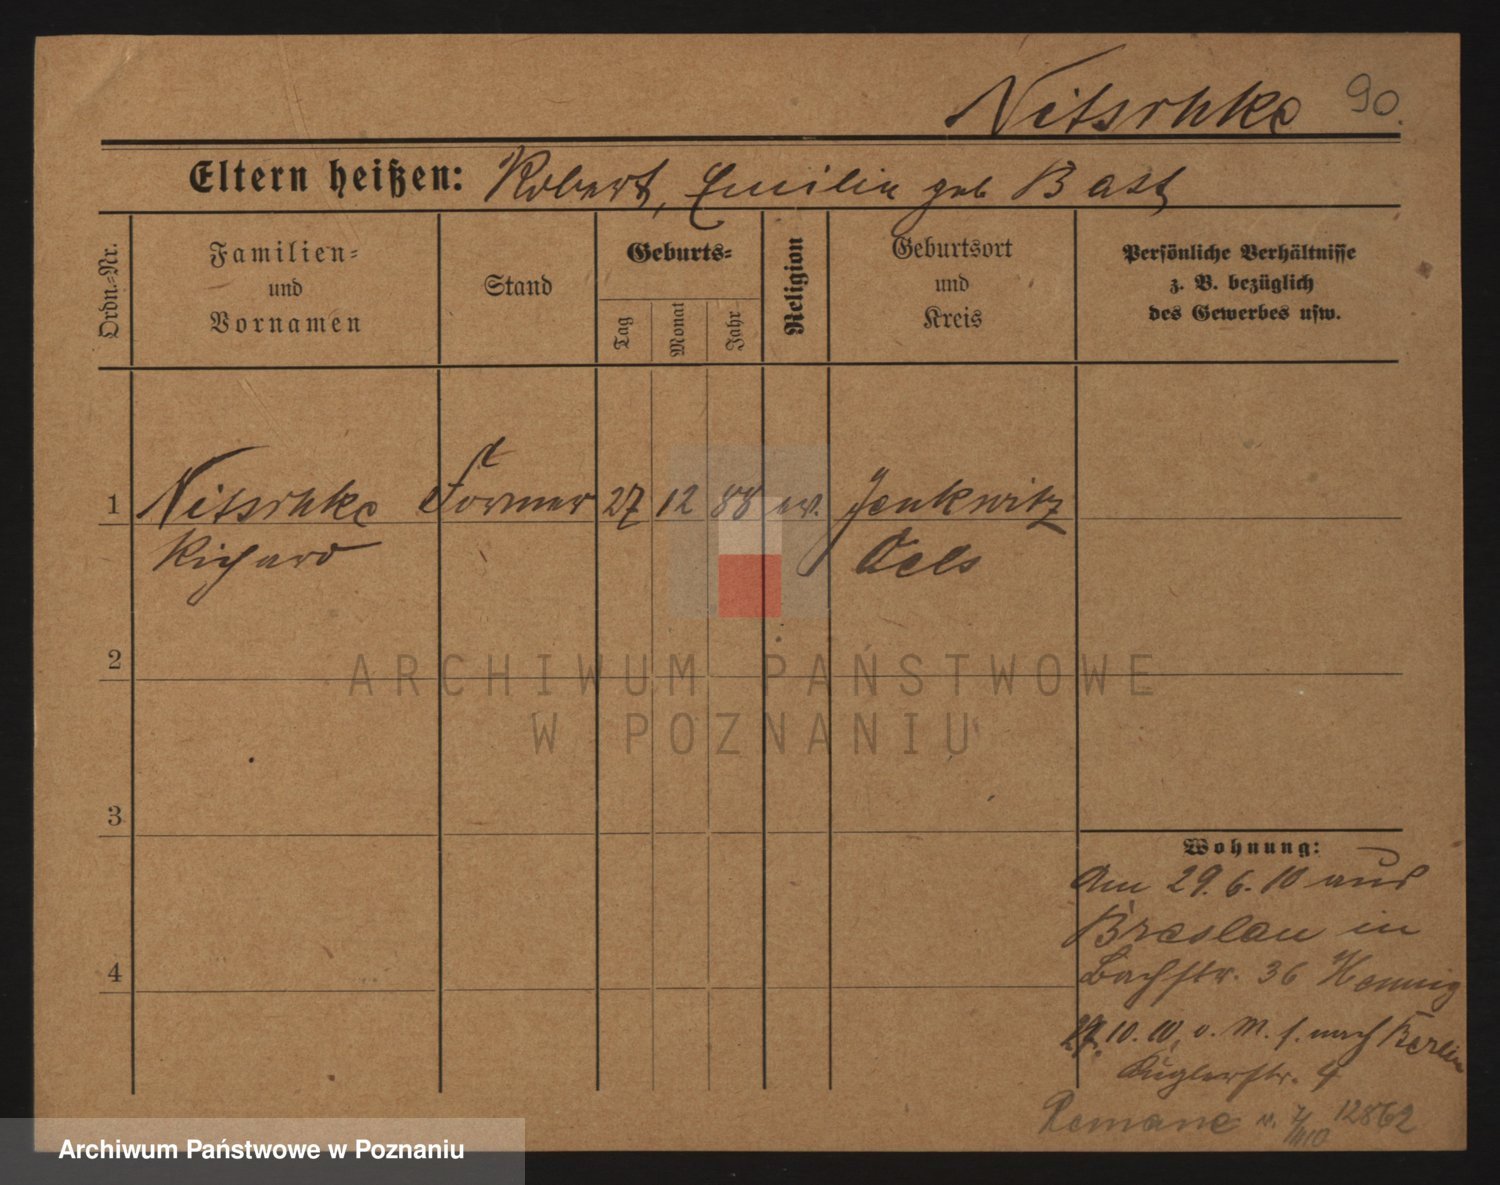 Nitschke 90.
Eltern heißen: Robert, Emilie geb Bast
Ordn.-Nr.
Familien-
und
Vornamen
Stand
Geburts-
Tag
Monat
Jahr
Religion
Geburtsort
und
Kreis
Persönliche Verhältnisse
z. B. bezüglich
des Gewerbes usw.
1 Nitschke Former 27 12 88 ev. Jenkwitz
Richard Oels
2
ARCHIWUM PAŃSTWOWE
W POZNANIU
3
Wohnung:
Am 29.6.10 aus
Breslau in
Bachstr. 36 Hennig
4
29.10.10, v. M. f. nach Berlin
Kuglerstr. 4
12862
Archiwum Państwowe w Poznaniu